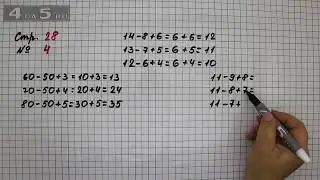 4а5.ru
Стр. 28
№ 4
14-8+6=6+6=12
13-7+5=6+5=11
12-6+4=6+4=10
60-50+3=10+3=13
70-50+4=20+4=24
80-50+5=30+5=35
11-9+8=
11-8+7=
11-7+